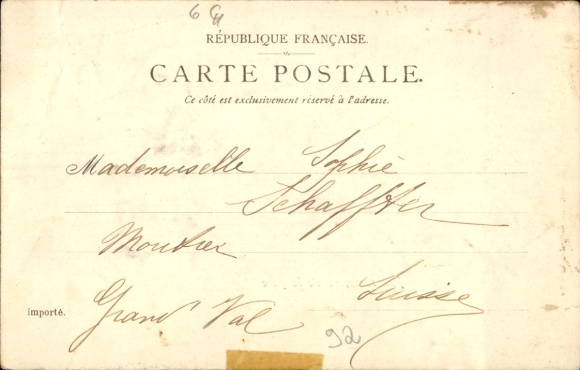 6
RÉPUBLIQUE FRANÇAISE.
CARTE POSTALE.
Ce côté est exclusivement réservé à l'adresse.
Mademoiselle Sophie
Schaffter
Moutier
Suisse
importé.
Grand Val
92